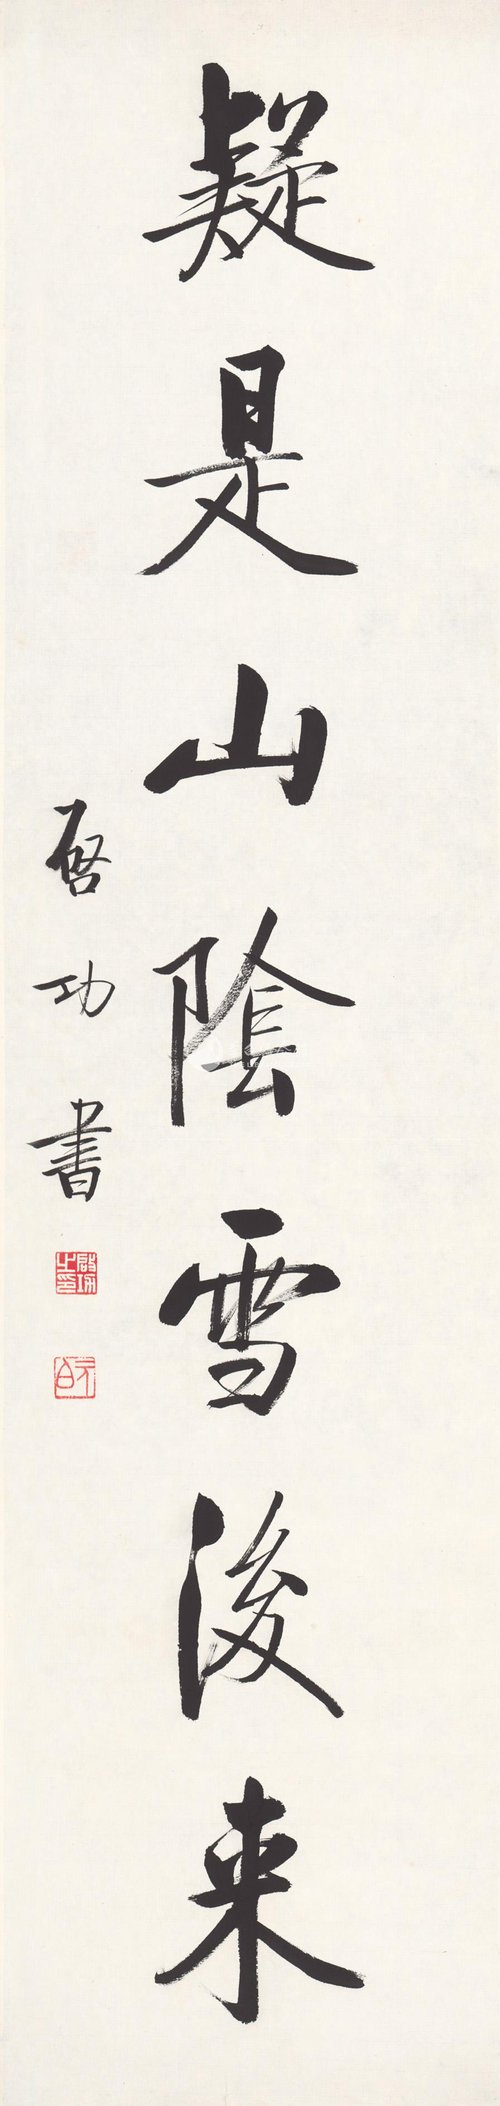 疑是山陰雪後来
啓功書
啟功之印
元白